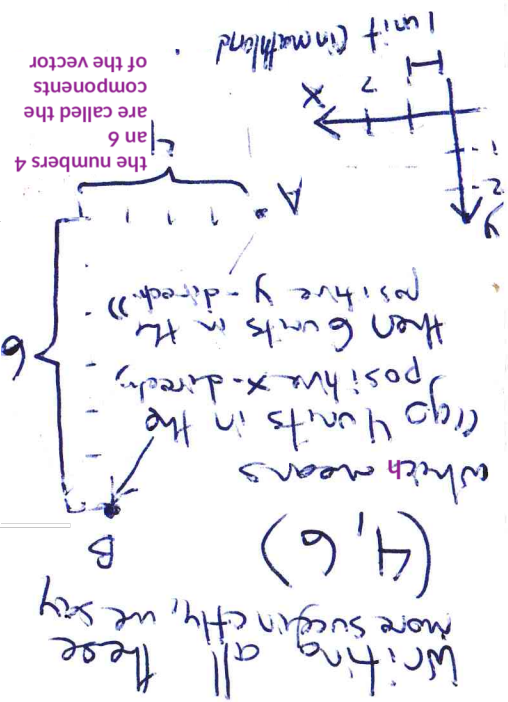 Writing all these
more succinctly, we say
(4, 6)
B
which means
"go 4 units in the
positive x-directn,
then 6 units in the
positive y-directn"
6
A
4
the numbers 4
an 6
are called the
components
of the vector
y
2
1
2
x
1 unit (in mathland